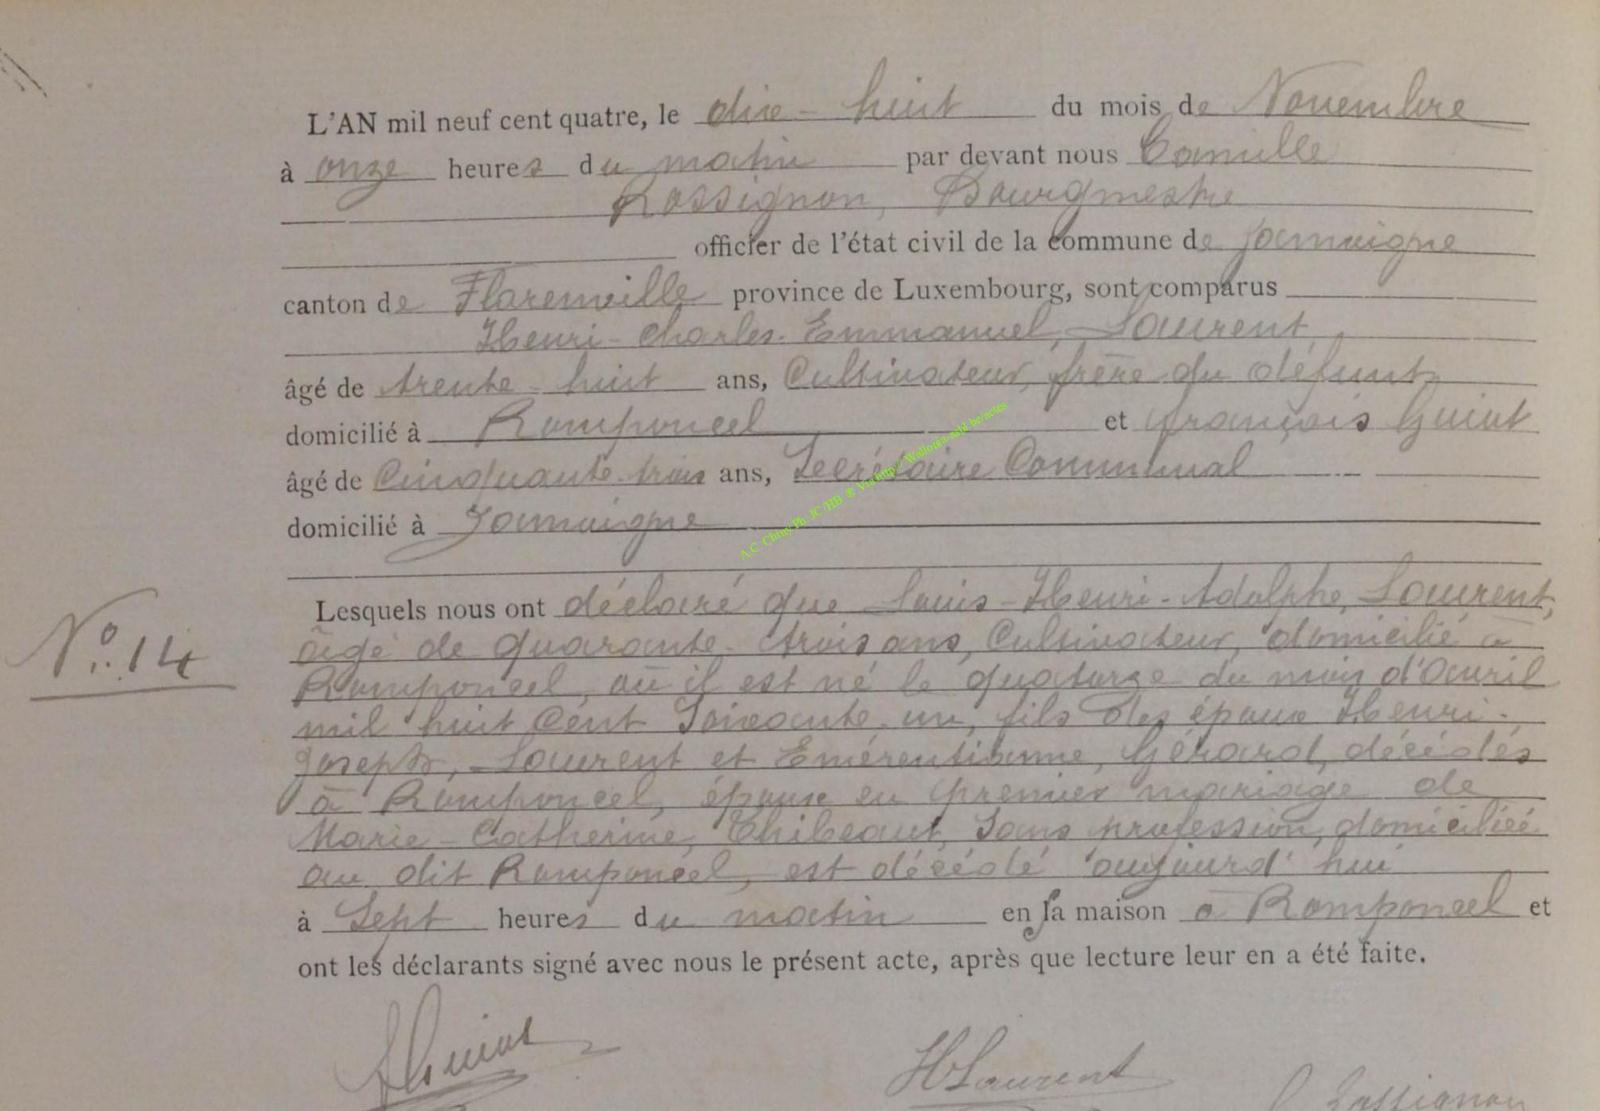 L'AN mil neuf cent quatre, le dix-huit du mois de Novembre
à onze heures du matin par devant nous Camille
Rossignon, Bourgmestre
officier de l'état civil de la commune de Jamoigne
canton de Florenville province de Luxembourg, sont comparus
Henri-Charles-Emmanuel, Laurent,
âgé de trente-huit ans, Cultivateur, frère du défunt,
domicilié à Romponcel et françois Guiot
âgé de Cinquante-trois ans, Secrétaire Communal
domicilié à Jamoigne
Lesquels nous ont déclaré que Louis-Henri-Adolphe, Laurent,
âgé de quarante-trois ans, Cultivateur, domicilié à
N° 14
Romponcel, où il est né le quatorze du mois d'avril
mil huit Cent Soixante-un, fils des époux Henri-
Joseph, Laurent et Emérentienne, Gérard, décédés
à Romponcel, époux en premier mariage de
Marie-Catherine, Thibeaut, Sans profession, domiciliée
au dit Romponcel, est décédé aujourd'hui
à Sept heures du matin en sa maison à Romponcel et
ont les déclarants signé avec nous le présent acte, après que lecture leur en a été faite.
HLaurent
Rossignon